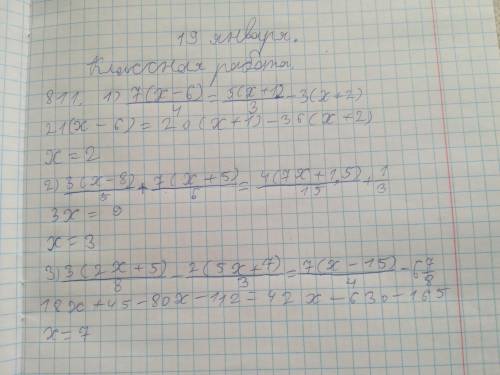 19 января.
Классная работа.
811. 1) 7(x-6)/4 = 5(x+1)/3 - 3(x+2)
21(x-6) = 20(x+1) - 36(x+2)
x = 2
2) 3(x-8)/5 + 7(x+5)/6 = 4(7x+1,5)/15 + 1/3
3x = 9
x = 3
3) 3(2x+5)/8 - 2(5x+7)/3 = 7(x-15)/4 - 6 7/8
18x+45-80x-112=42x-630-165
x=7